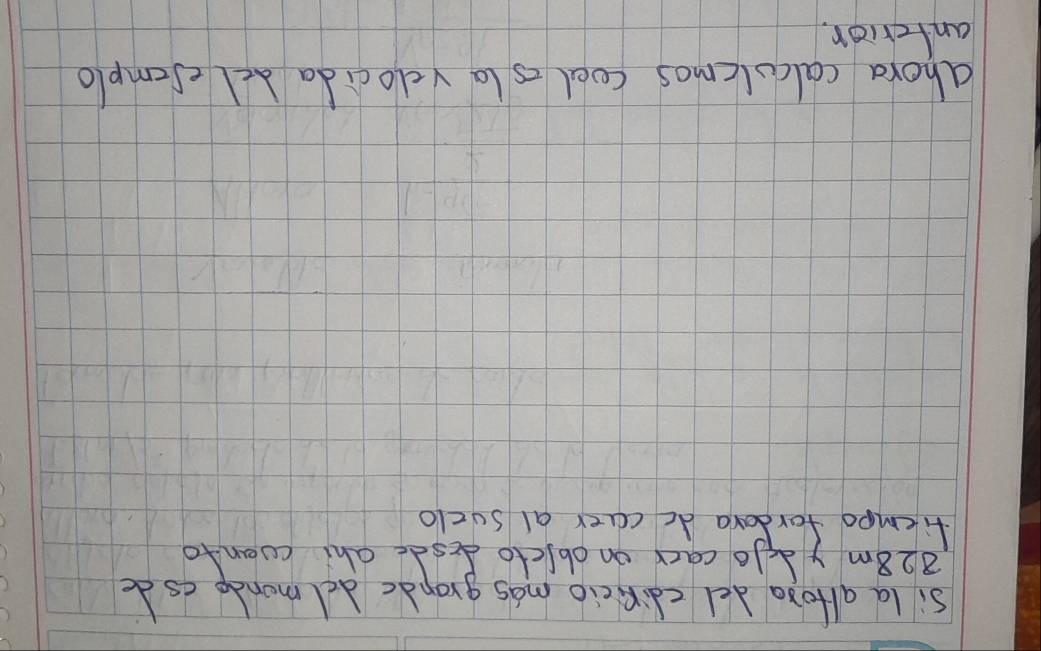 Si la altura del edificio más grande del mundo es de
828m y dejo caer un objeto desde ahí cuanto
tiempo tardara de caer al suelo
ahora calculemos cual es la velocida del ejemplo
anterior.